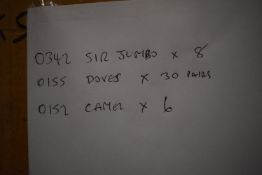 0342 SIR JUMBO x 8
0155 DOVES x 30 PAIRS
0152 CAMEL x 6